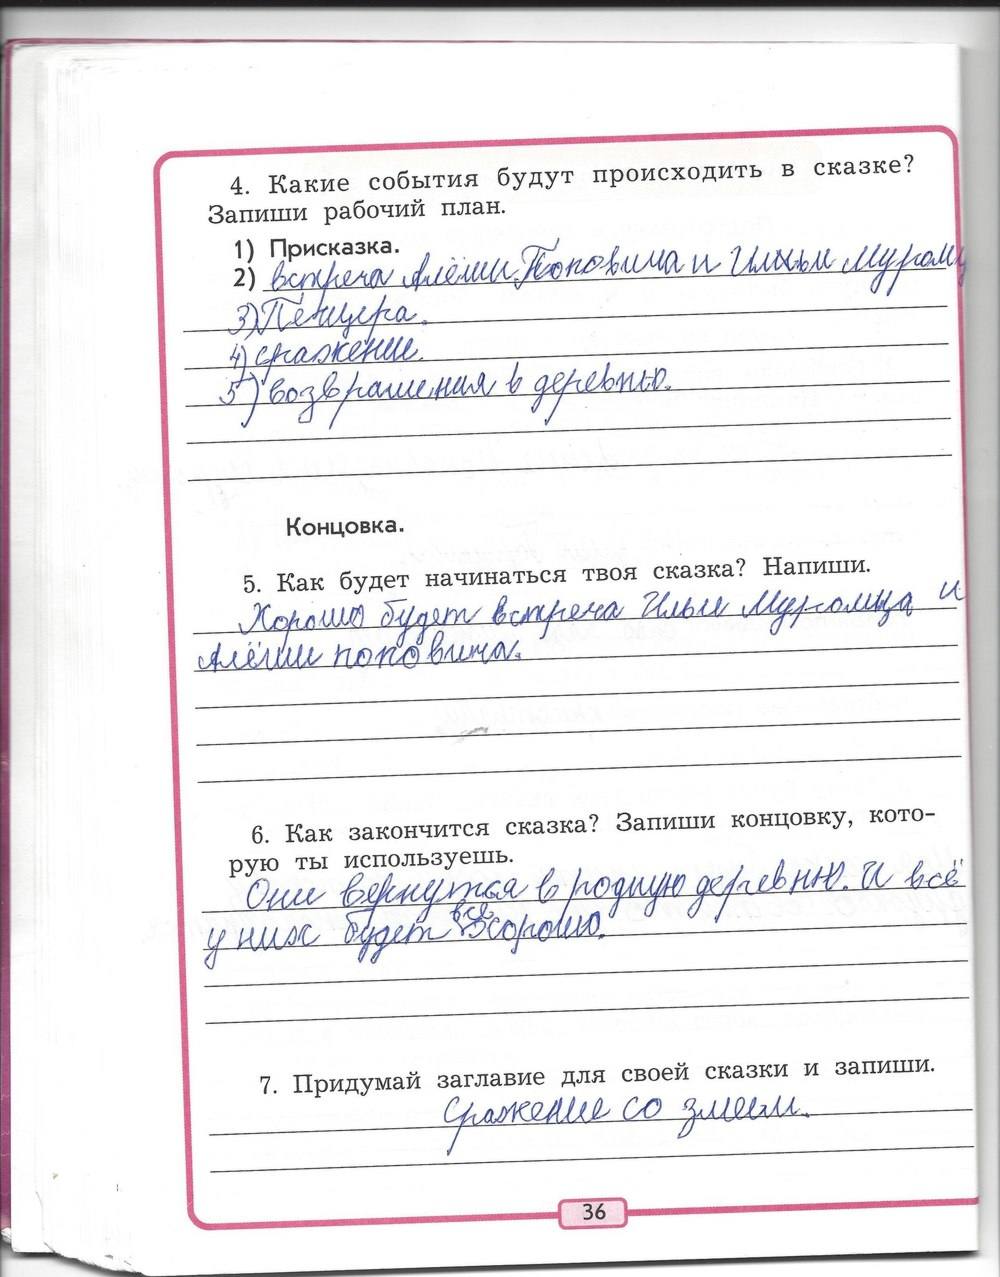 4. Какие события будут происходить в сказке?
Запиши рабочий план.
1) Присказка.
2) встреча Алёши Поповича и Ильи Муромц
3) Пещера.
4) сражение.
5) возврашения в деревню.
Концовка.
5. Как будет начинаться твоя сказка? Напиши.
Хорошо будет встреча Ильи Муромца и
Алёши поповича.
6. Как закончится сказка? Запиши концовку, кото-
рую ты используешь.
Они вернутся в родную деревню. И всё
у них будет все хорошо.
7. Придумай заглавие для своей сказки и запиши.
Сражение со змеем.
36